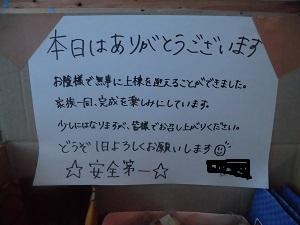 本日はありがとうございます
お陰様で無事に上棟を迎えることができました。
家族一同、完成を楽しみにしています。
少しにはなりますが、皆様でお召し上がりください。
どうぞ1日よろしくお願いします
☆安全第一☆